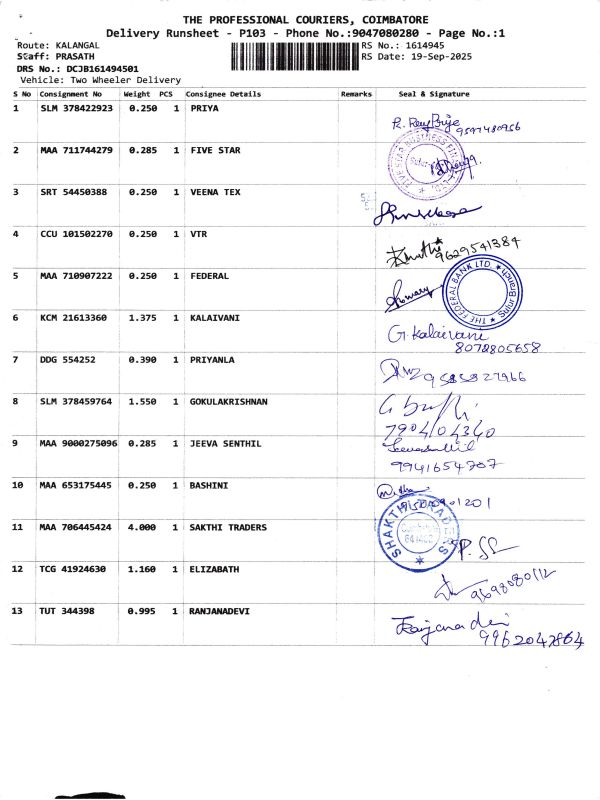 THE PROFESSIONAL COURIERS, COIMBATORE
Delivery Runsheet - P103 - Phone No.:9047080280 - Page No.:1
Route: KALANGAL RS No.: 1614945
Staff: PRASATH RS Date: 19-Sep-2025
DRS No.: DCJB161494501
Vehicle: Two Wheeler Delivery
S No Consignment No Weight PCS Consignee Details Remarks Seal & Signature
1 SLM 378422923 0.250 1 PRIYA
2 MAA 711744279 0.285 1 FIVE STAR
FIVE STAR BUSINESS FIN LTD.
3 SRT 54450388 0.250 1 VEENA TEX
4 CCU 101502270 0.250 1 VTR
9629541384
5 MAA 710907222 0.250 1 FEDERAL
THE FEDERAL BANK LTD. Sulur Branch
6 KCM 21613360 1.375 1 KALAIVANI G. Kalaivani
8072805658
7 DDG 554252 0.390 1 PRIYANLA
8 SLM 378459764 1.550 1 GOKULAKRISHNAN
7904104340
9 MAA 9000275096 0.285 1 JEEVA SENTHIL Jeevasenthil
9941654707
10 MAA 653175445 0.250 1 BASHINI
11 MAA 706445424 4.000 1 SAKTHI TRADERS
SHAKTHI TRADERS
12 TCG 41924630 1.160 1 ELIZABATH
9698080112
13 TUT 344398 0.995 1 RANJANADEVI Ranjana devi
9962047864